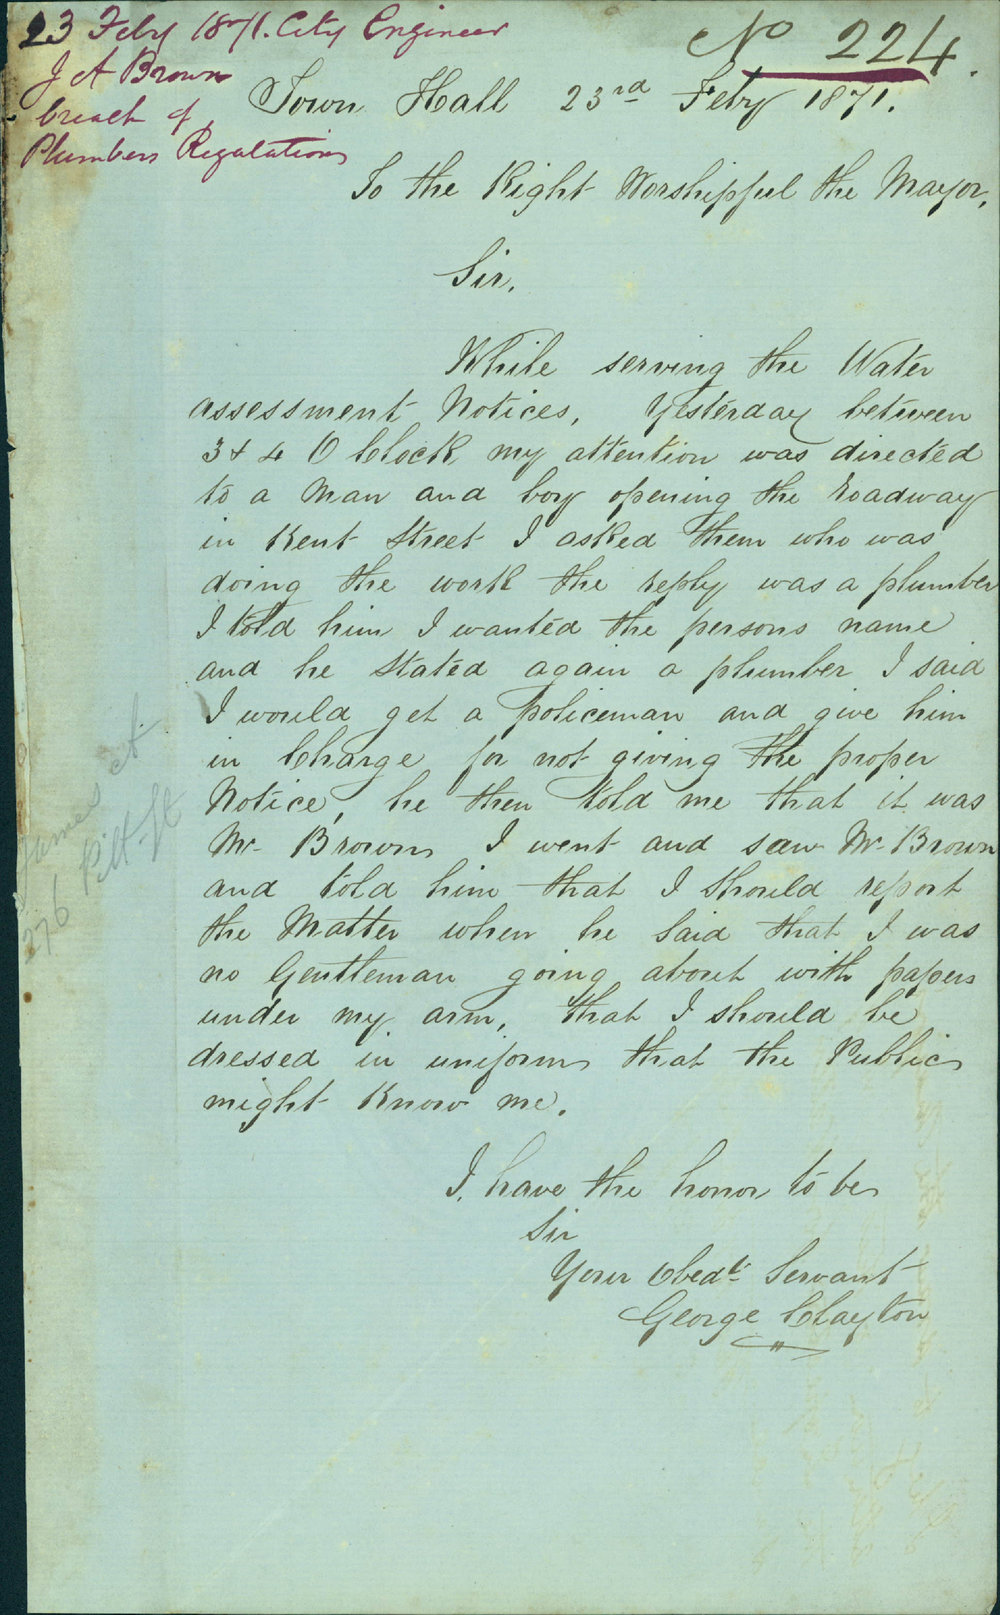 23 Feby 1871. City Engineer
J A Brown
breach of
Plumbers Regulations
No 224.
Town Hall 23rd Feby 1871.
To the Right Worshipful the Mayor,
Sir,
While serving the Water
assessment Notices, Yesterday between
3 & 4 O Clock my attention was directed
to a Man and boy opening the roadway
in Kent Street I asked them who was
doing the work the reply was a plumber
I told him I wanted the persons name
and he stated again a plumber I said
I would get a policeman and give him
in Charge for not giving the proper
Notice, he then told me that it was
Mr Brown I went and saw Mr Brown
and told him that I should report
the Matter when he Said that I was
no Gentleman going about with papers
under my arm, that I should be
dressed in uniform that the Public
might Know me.
I have the honor to be
Sir
Your Obedt Servant
George Clayton
James
276 Pitt St